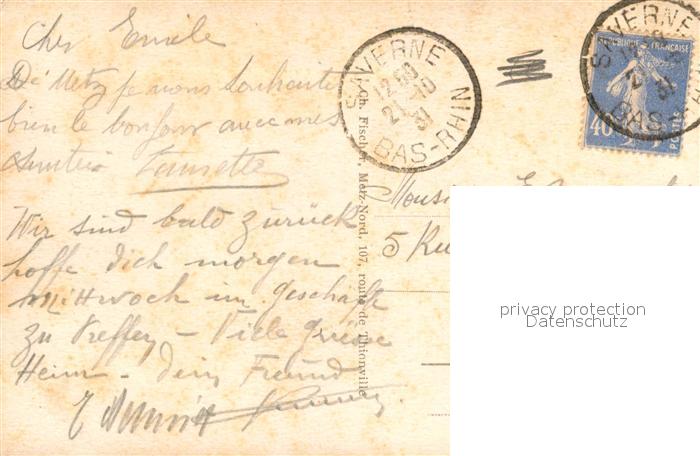 Cher Emile
De Metz je vous souhaite
bien le bonjour avec mes
Wir sind bald zurück
hoffe dich morgen
Mittwoch im Geschäft
zu treffen – Viele Grüsse
Dein Freund
SAVERNE
12 50
21-10
31
BAS-RHIN
Ch. Fischer, Metz-Nord, 107, route de Thionville
SAVERNE
31
BAS-RHIN
REPUBLIQUE FRANÇAISE
40
POSTES
5 Rue
privacy protection
Datenschutz